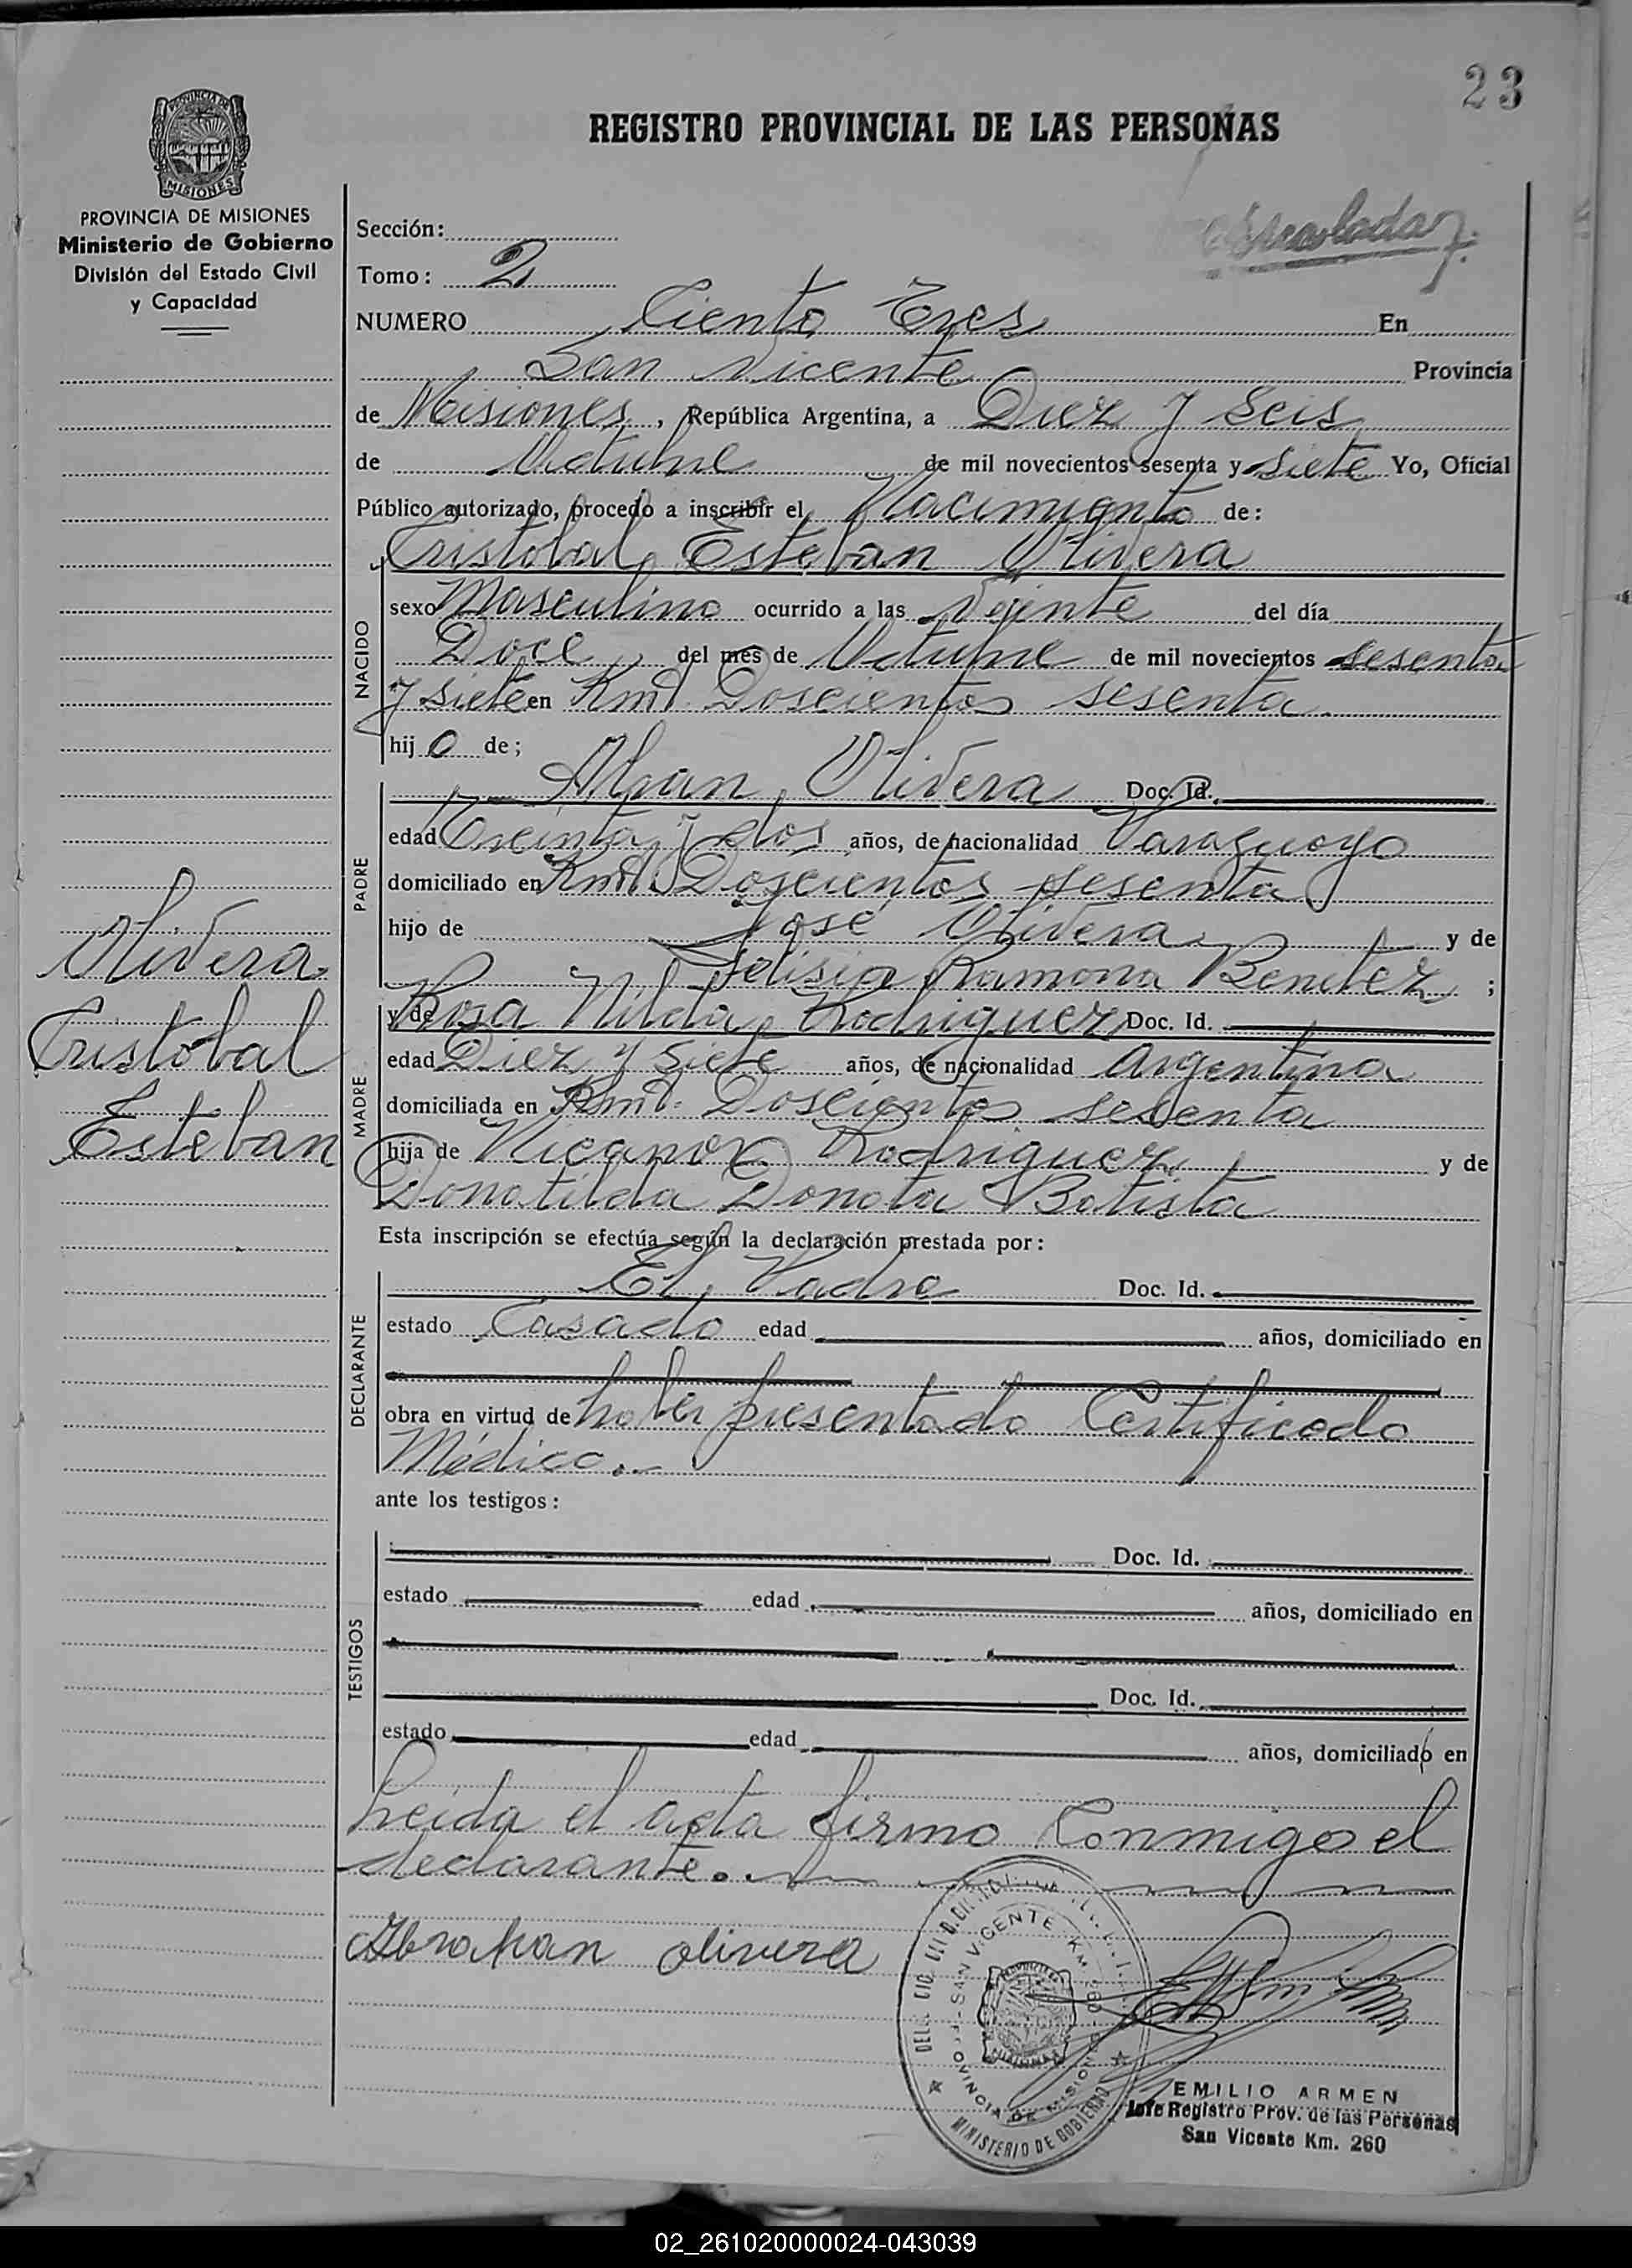 23
REGISTRO PROVINCIAL DE LAS PERSONAS
PROVINCIA DE
MISIONES
PROVINCIA DE MISIONES
Ministerio de Gobierno
División del Estado Civil
y Capacidad
Sección:
Tomo: 2
NUMERO Ciento Tres En
San Vicente Provincia
de Misiones, República Argentina, a Diez y Seis
de Octubre de mil novecientos sesenta y siete Yo, Oficial
Público autorizado, procedo a inscribir el Nacimiento de:
Cristobal Esteban Olivera
NACIDO
sexo Masculino ocurrido a las Veinte del día
Doce del mes de Octubre de mil novecientos sesenta
y siete en Kmt. Doscientos sesenta
hijo de;
PADRE
Olivera Doc. Id.
edad Treinta y dos años, de nacionalidad Paraguayo
domiciliado en Kmt. Doscientos sesenta
hijo de José Olivera y de
Felisia Ramona Benitez ;
MADRE
y de Rosa Nilda Rodriguez Doc. Id.
edad Diez y siete años, de nacionalidad Argentina
domiciliada en Kmt. Doscientos sesenta
hija de Nicanor Rodriguez y de
Donatilda Donata Batista
Olivera
Cristobal
Esteban
Esta inscripción se efectúa según la declaración prestada por:
DECLARANTE
El Padre Doc. Id.
estado Casado edad años, domiciliado en
obra en virtud de haber presentado Certificado
Médico.
ante los testigos:
TESTIGOS
Doc. Id.
estado edad años, domiciliado en
Doc. Id.
estado edad años, domiciliado en
Leida el acta firmo Conmigo el
declarante.
Abrahan olivera
SAN VICENTE KM 260
PROVINCIA DE MISIONES
MINISTERIO DE GOBIERNO
EMILIO ARMEN
Jefe Registro Prov. de las Personas
San Vicente Km. 260
02_261020000024-043039